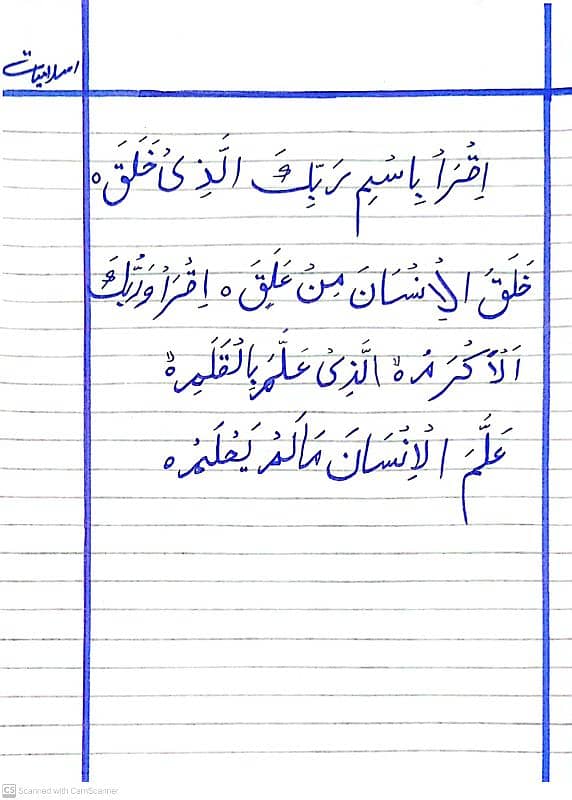 اسلامیات
اِقْرَاْ بِاسْمِ رَبِّكَ الَّذِیْ خَلَقَ ۝
خَلَقَ الْاِنْسَانَ مِنْ عَلَقٍ ۝ اِقْرَاْ وَرَبُّكَ
الْاَكْرَمُ ۝ الَّذِیْ عَلَّمَ بِالْقَلَمِ ۝
عَلَّمَ الْاِنْسَانَ مَا لَمْ یَعْلَمْ ۝
CS Scanned with CamScanner